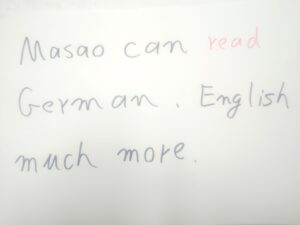 Masao can read
German. English
much more.